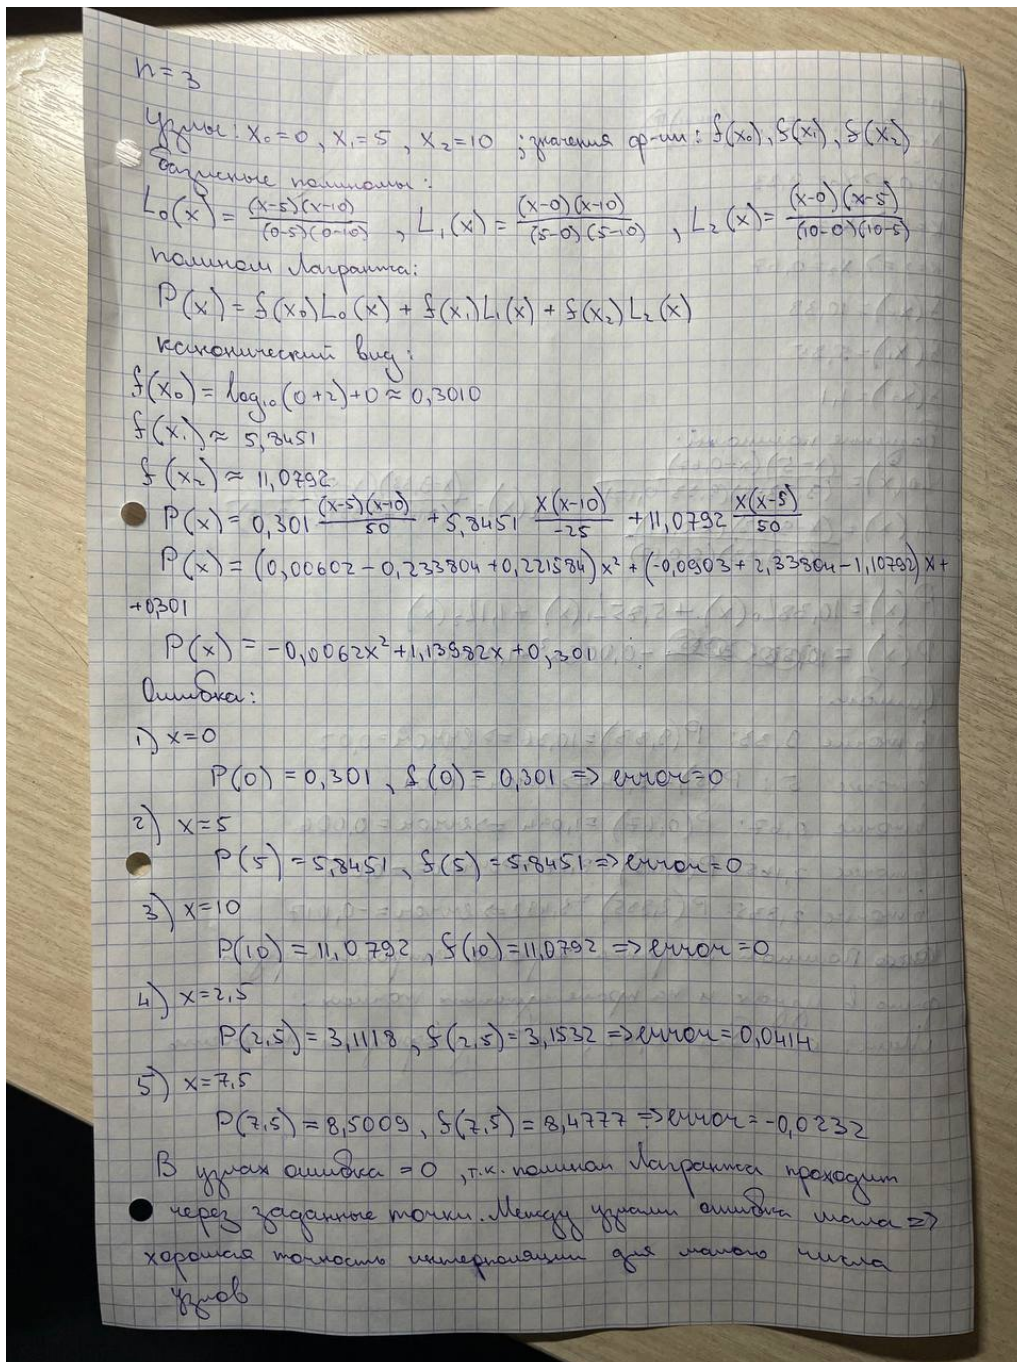 n=3
Узлы: x₀=0, x₁=5, x₂=10 ; значения ф-ии: f(x₀), f(x₁), f(x₂)
базисные полиномы:
L₀(x) = (x-5)(x-10)/(0-5)(0-10) , L₁(x) = (x-0)(x-10)/(5-0)(5-10) , L₂(x) = (x-0)(x-5)/(10-0)(10-5)
полином Лагранжа:
P(x) = f(x₀)L₀(x) + f(x₁)L₁(x) + f(x₂)L₂(x)
канонический вид:
f(x₀) = log₁₀(0+2)+0 ≈ 0,3010
f(x₁) ≈ 5,8451
f(x₂) ≈ 11,0792
P(x) = 0,301 (x-5)(x-10)/50 + 5,8451 x(x-10)/-25 + 11,0792 x(x-5)/50
P(x) = (0,00602 - 0,233804 + 0,221584)x² + (-0,0903 + 2,33804 - 1,10792)x +
+0,301
P(x) = -0,0062x² + 1,13982x + 0,301
Ошибка:
1) x=0
P(0) = 0,301 , f(0) = 0,301 => error=0
2) x=5
P(5) = 5,8451, f(5) = 5,8451 => error=0
3) x=10
P(10) = 11,0792 , f(10) = 11,0792 => error=0
4) x=2,5
P(2,5) = 3,1118 , f(2,5) = 3,1532 => error = 0,0414
5) x=7,5
P(7,5) = 8,5009, f(7,5) = 8,4777 => error = -0,0232
В узлах ошибка = 0 , т.к. полином Лагранжа проходит
через заданные точки. Между узлами ошибка мала =>
хорошая точность интерполяции для малого числа
узлов